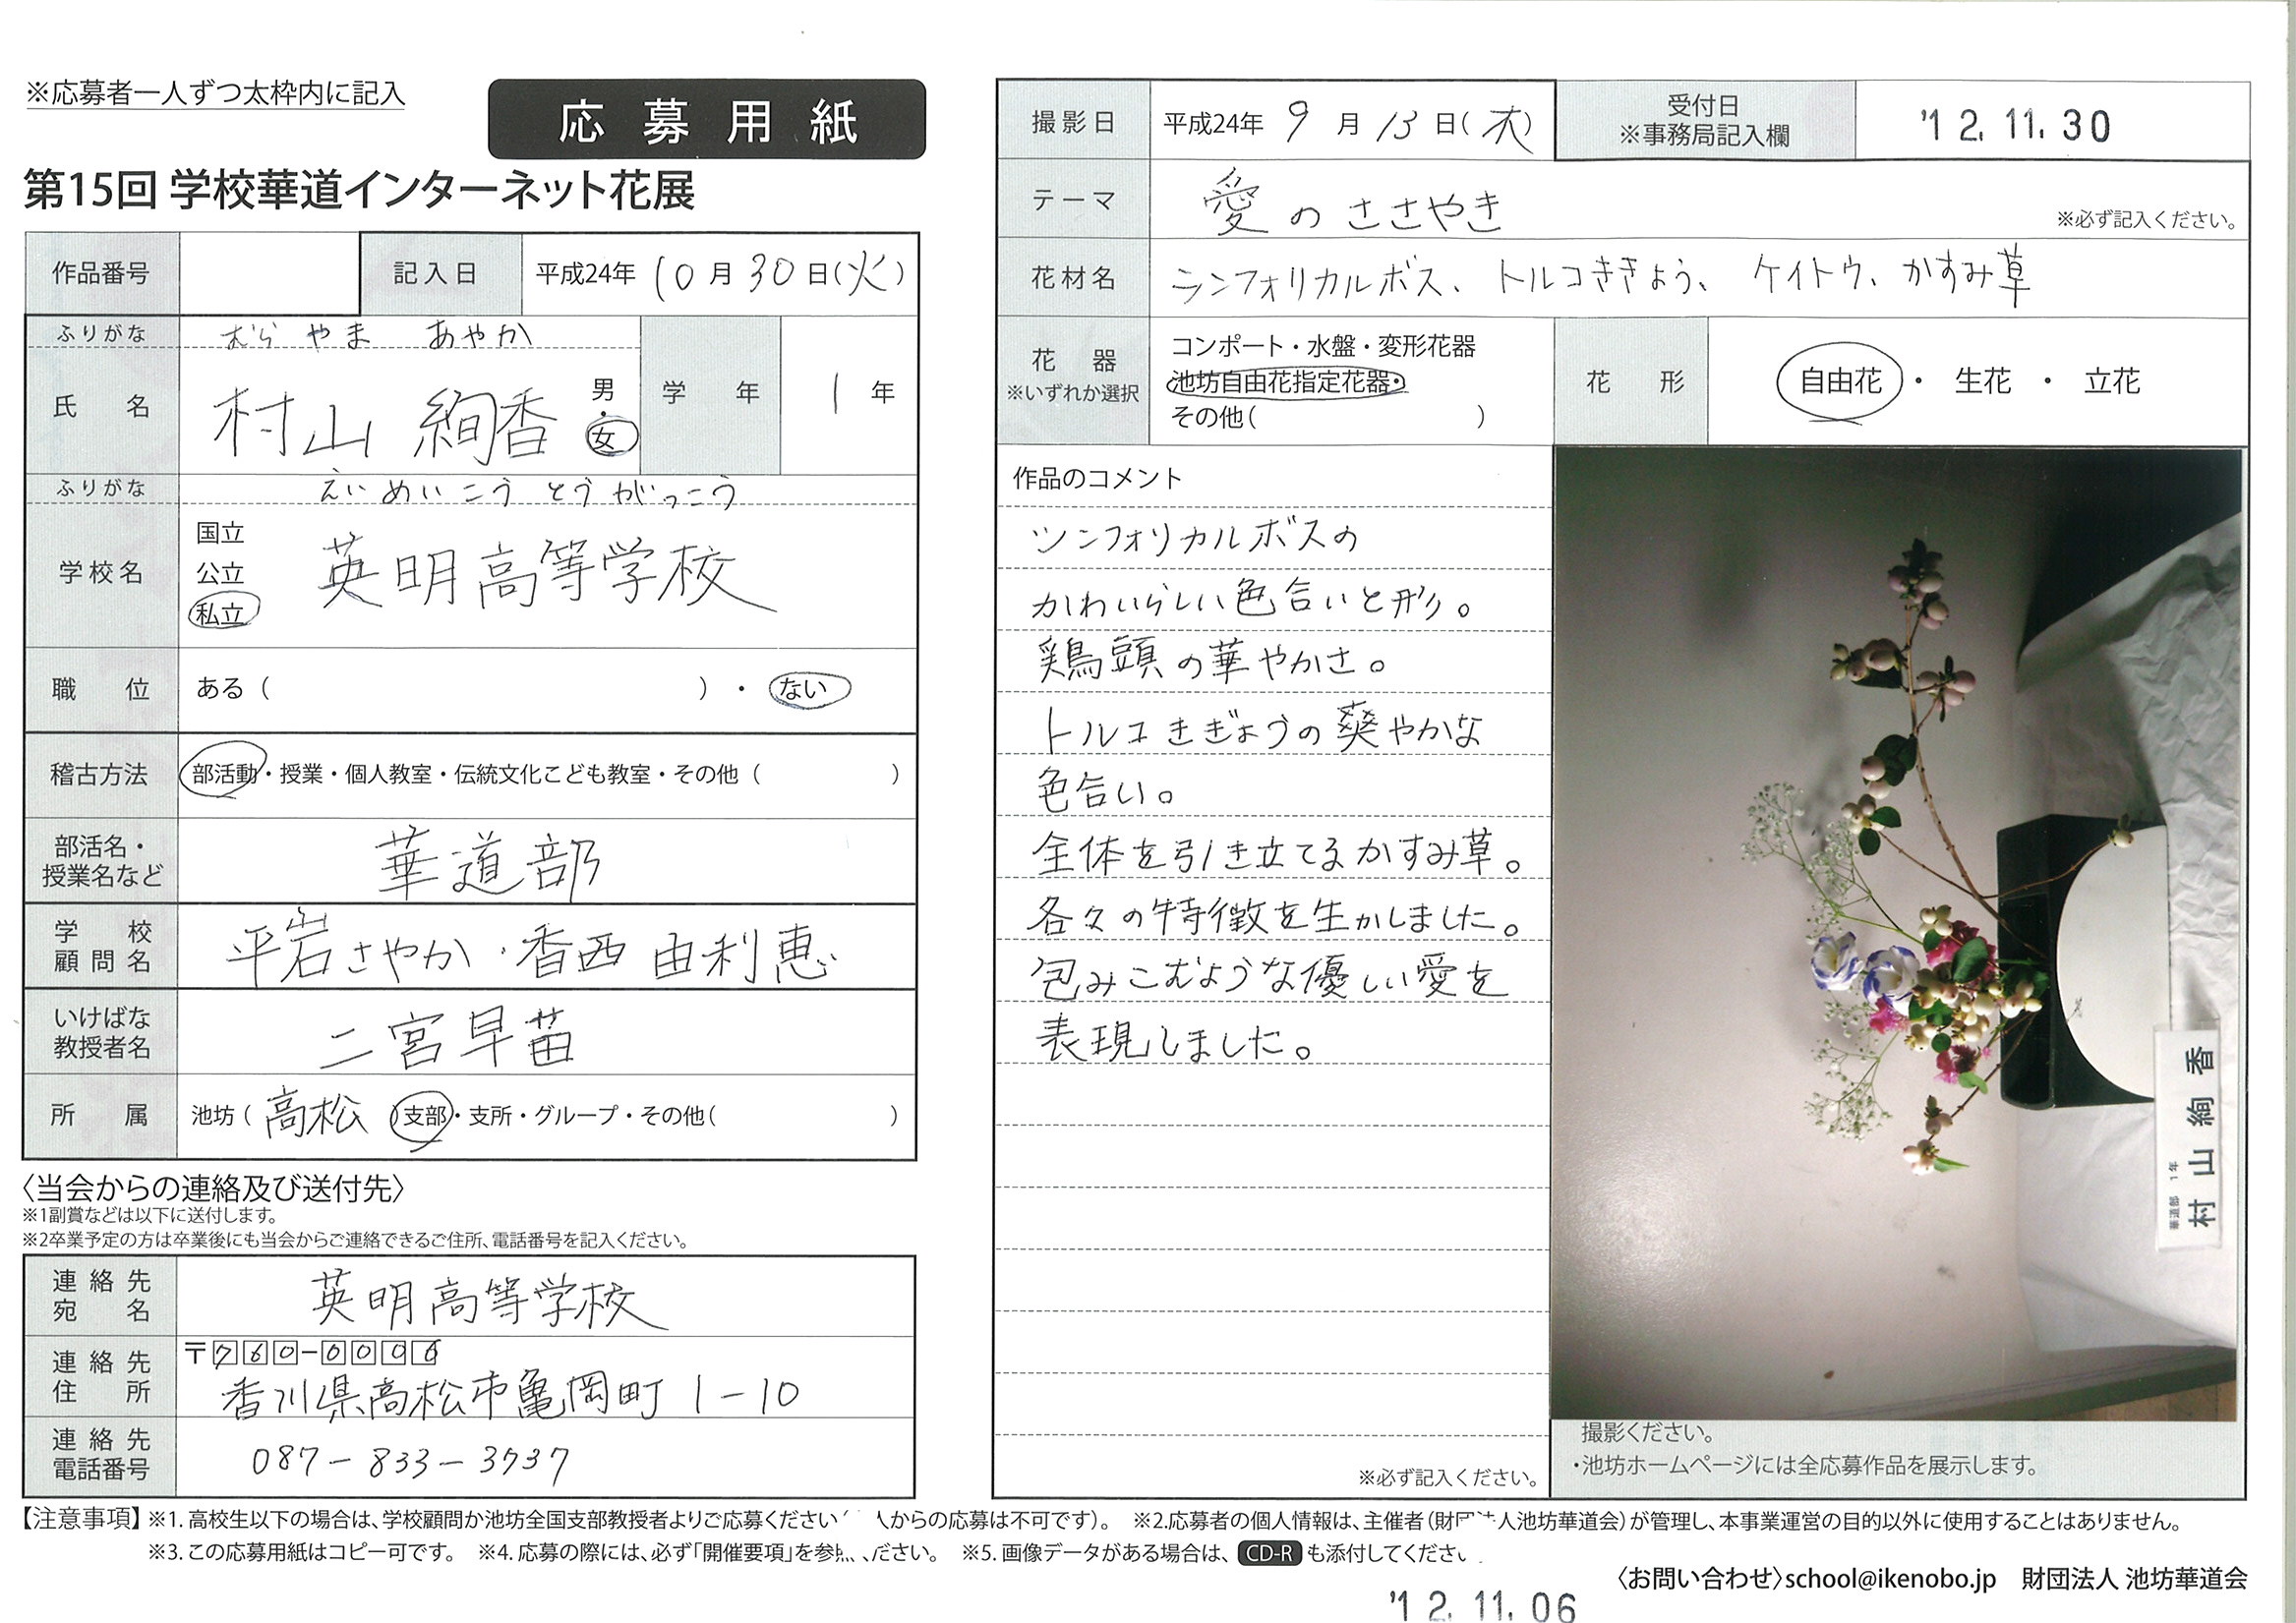 ※応募者一人ずつ太枠内に記入
応募用紙
第15回 学校華道インターネット花展
作品番号
記入日 平成24年 10月30日(火)
ふりがな むらやま あやか
氏名 村山 絢香 男・女
学年 1年
ふりがな えいめいこうとうがっこう
学校名 国立 公立 私立 英明高等学校
職位 ある( )・ない
稽古方法 部活動・授業・個人教室・伝統文化こども教室・その他( )
部活名・授業名など 華道部
学校顧問名 平岩さやか・香西由利恵
いけばな教授者名 二宮早苗
所属 池坊(高松)支部・支所・グループ・その他( )
〈当会からの連絡及び送付先〉
※1副賞などは以下に送付します。
※2卒業予定の方は卒業後にも当会からご連絡できるご住所、電話番号を記入ください。
連絡先宛名 英明高等学校
連絡先住所 〒760-0006
香川県高松市亀岡町1-10
連絡先電話番号 087-833-3737
撮影日 平成24年 9月13日(木)
受付日 ※事務局記入欄 '12.11.30
テーマ 愛のささやき ※必ず記入ください。
花材名 シンフォリカルボス、トルコききょう、ケイトウ、かすみ草
花器 ※いずれか選択
コンポート・水盤・変形花器
池坊自由花指定花器・
その他( )
花形 自由花・生花・立花
作品のコメント
シンフォリカルボスの
かわいらしい色合いと形。
鶏頭の華やかさ。
トルコきぎょうの爽やかな
色合い。
全体を引き立てるかすみ草。
各々の特徴を生かしました。
包みこむような優しい愛を
表現しました。
※必ず記入ください。
華道部 1年
村山絢香
撮影ください。
・池坊ホームページには全応募作品を展示します。
【注意事項】※1.高校生以下の場合は、学校顧問か池坊全国支部教授者よりご応募ください 人からの応募は不可です)。 ※2.応募者の個人情報は、主催者(財団法人池坊華道会)が管理し、本事業運営の目的以外に使用することはありません。
※3.この応募用紙はコピー可です。 ※4.応募の際には、必ず「開催要項」を参 ください。 ※5.画像データがある場合は、CD-Rも添付してください
〈お問い合わせ〉school@ikenobo.jp 財団法人 池坊華道会
'12.11.06